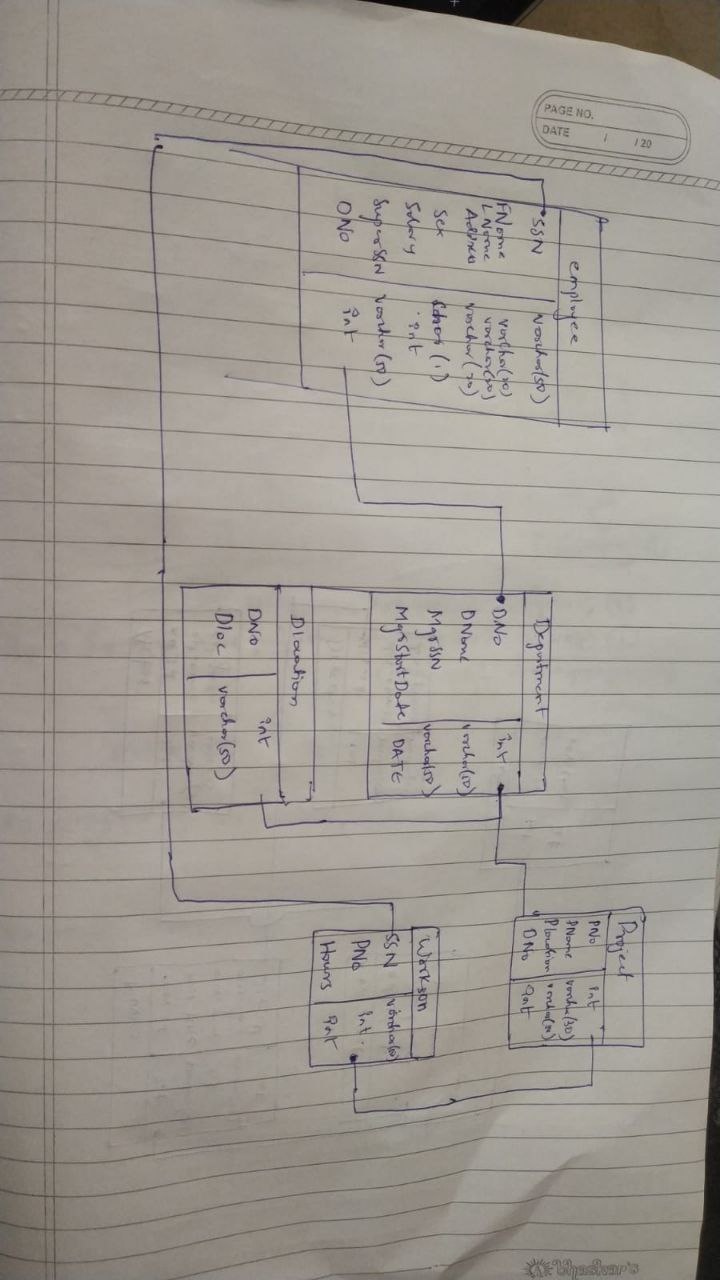 PAGE NO.
DATE / / 20
employee
SSN varchar(50)
FName varchar(30)
LName varchar(30)
Address varchar(70)
Sex char(1)
Salary int
SuperSSN varchar(50)
DNo int
Department
DNo int
DName varchar(50)
MgrSSN varchar(50)
MgrStartDate DATE
Dlocation
DNo int
Dloc varchar(50)
Project
PNo int
PName varchar(30)
Plocation varchar(
DNo int
Workson
SSN varchar(
PNo int
Hours int